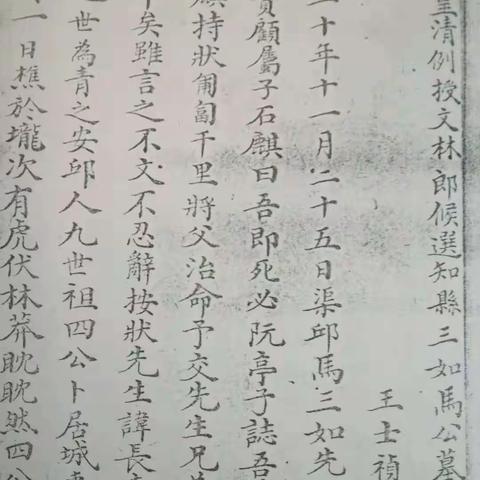 皇清例授文林郎候選知縣三如馬公墓
王士禎
二十年十一月二十五日渠邱馬三如先
顧屬子石麒曰吾即死必阮亭子誌吾
麒持狀匍匐千里將父治命予交先生兄
矣雖言之不文不忍辭按狀先生諱長
世為青之安邱人九世祖四公卜居城
一日樵於壠次有虎伏林莽眈眈然四公